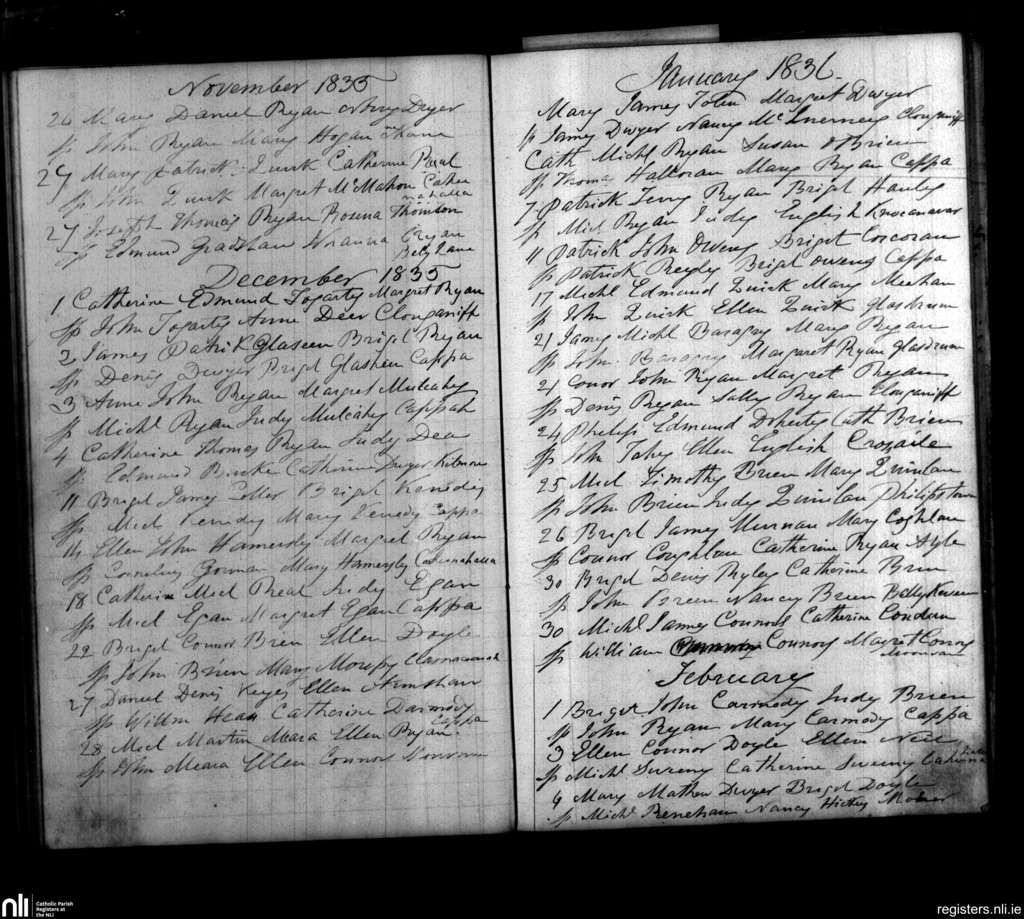 November 1835
26 Mary Daniel Ryan Mary Dwyer
sp John Ryan Mary Hogan
27 Mary Patrick Quirk Catherine
sp John Quirk Margret McMahon
27 Joseph Thomas Ryan Rosina Thomson
sp Edmund Bradshaw Ryan
Betty Lane
December 1835
1 Catherine Edmund Fogarty Margret Ryan
sp John Fogarty Anne Deer Clouganiff
2 James Patrik Glaseen Briget Ryan
sp Denis Dwyer Briget Glasheen Cappa
3 Anne John Ryan Margret Mulcahy
sp Michl Ryan Judy Mulcahy Cappah
4 Catherine Thomas Ryan Judy Dea
sp Edmund Burke Catherine Dwyer Kilmore
11 Briget James Briget Kenedy
sp Micl Kenedy Mary Kenedy Cappa
14 Ellen John Hamersly Margret Ryan
sp Cornelius Gorman Mary Hamersley
18 Catherin Micl Preal Judy Egan
sp Micl Egan Margret Egan Cappa
22 Briget Connor Brien Ellen Doyle
sp John Brien Mary Morissy
27 Daniel Denis Keyes Ellen
sp Willm Catherine Darmody
Cappa
28 Micl Martin Meara Ellen Ryan
sp John Meara Ellen Connors
January 1836.
Mary James Tobin Margret Dwyer
sp James Dwyer Nancy McInerney Clouganiff
Cath Michl Ryan Susan OBrien
sp Thomas Halloran Mary Ryan Cappa
7 Patrick Terry Ryan Briget Hanly
sp Micl Ryan Judy English Knocanavar
11 Patrick John Owens Briget Corcoran
sp Patrick Briget Owens Cappa
17 Michl Edmund Quirk Mary Meehan
sp John Quirk Ellen Quirk Glasdrum
21 James Michl Baragry Mary Ryan
sp John Baragry Margaret Ryan Glasdrum
21 Conor John Ryan Margret Ryan
sp Denis Ryan Sally Ryan Clouganiff
24 Philip Edmund Doherty Cath Brien
sp John Fahy Ellen English Crosaile
25 Micl Timothy Brien Mary Quinlan
sp John Brien Judy Quinlan Philipstown
26 Briget James Murnan Mary Coghlan
sp Connor Coughlan Catherine Ryan Ayle
30 Briget Denis Catherine Brien
sp John Breen Nancy Breen
30 Michl James Connors Catherine Condron
sp William Connors Magret Connors
February
1 Briget John Carmody Judy Brien
sp John Ryan Mary Carmody Cappa
3 Ellen Connor Doyle Ellen Neil
sp Michl Sweeny Catherine Sweeny
4 Mary Mathew Dwyer Briget Doyle
sp Michl Renehan Nancy Hickey
nli
Catholic Parish
Registers at
the NLI
registers.nli.ie